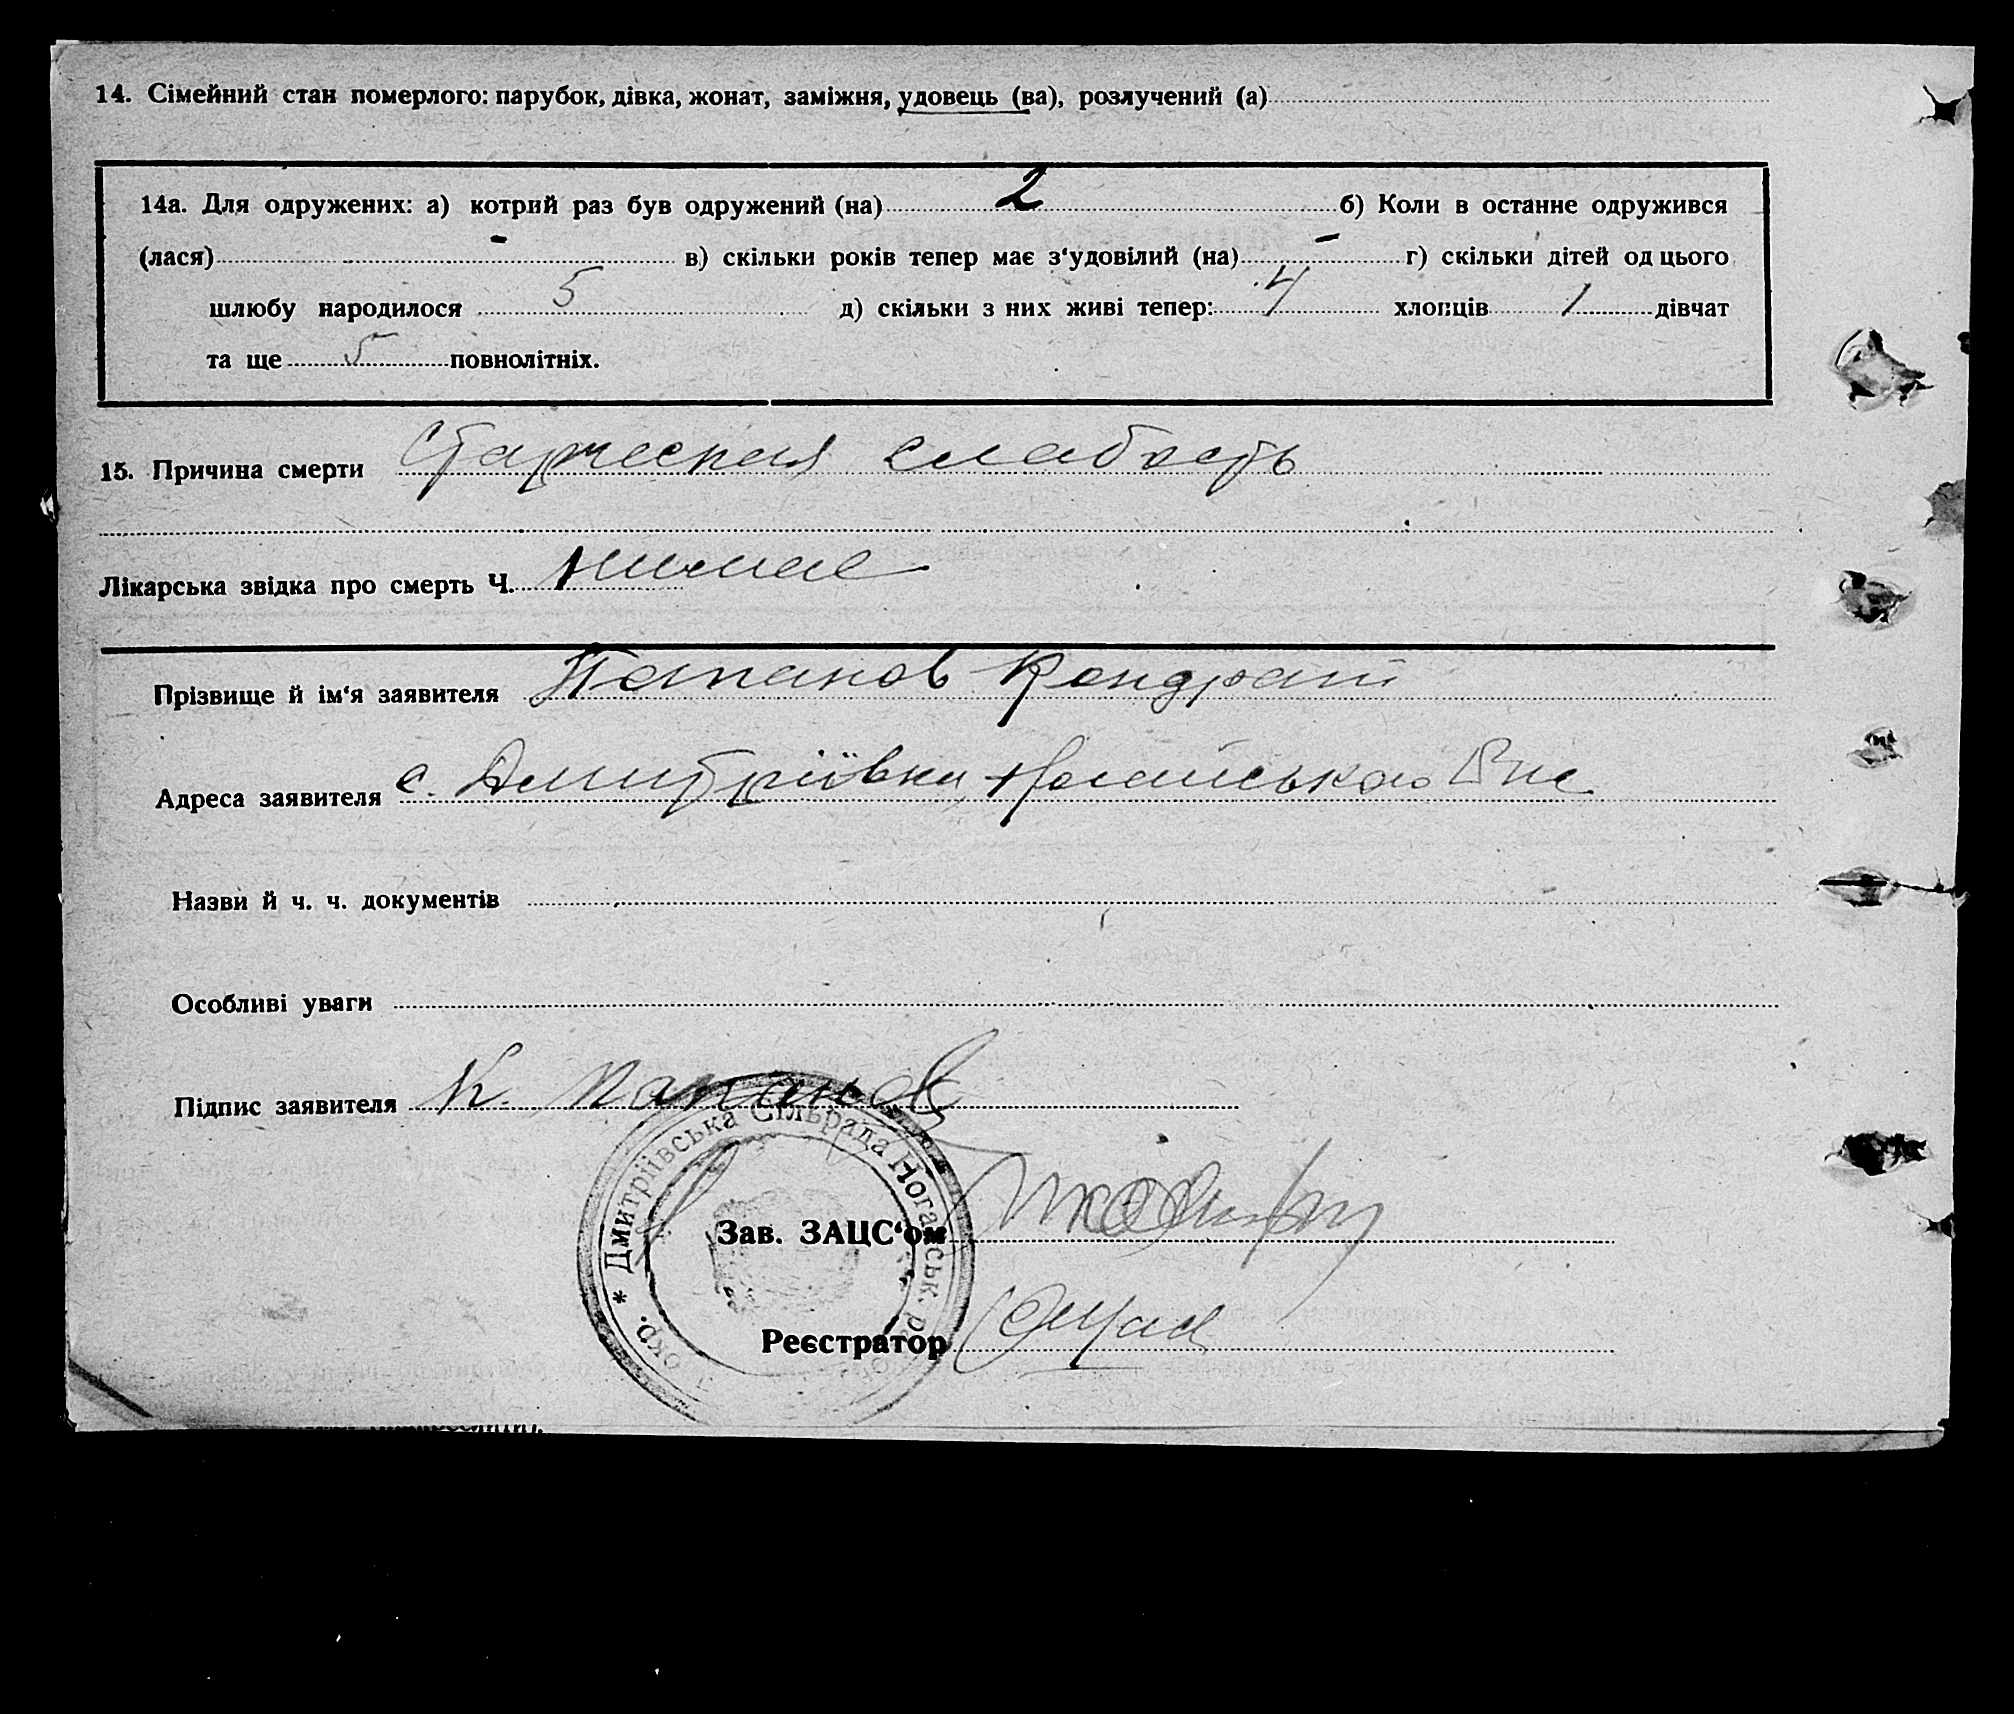 14. Сімейний стан померлого: парубок, дівка, жонат, заміжня, удовець (ва), розлучений (а)
14а. Для одружених: а) котрий раз був одружений (на) 2 б) Коли в останне одружився
(лася) - в) скільки років тепер має з‘удовілий (на) - г) скільки дітей од цього
шлюбу народилося 5 д) скільки з них живі тепер: 4 хлопців 1 дівчат
та ще 5 повнолітніх.
15. Причина смерти Старческая слабость
Лікарська звідка про смерть Ч. нимае
Прізвище й ім‘я заявителя Папанов Кондрат
Адреса заявителя с. Дмитріївки, Ногайського
Назви й ч. ч. документів
Особливі уваги
Підпис заявителя К. Папанов
* Дмитріївська Сільрада Ногайськ. окр.
Зав. ЗАЦС‘ом
Реєстратор